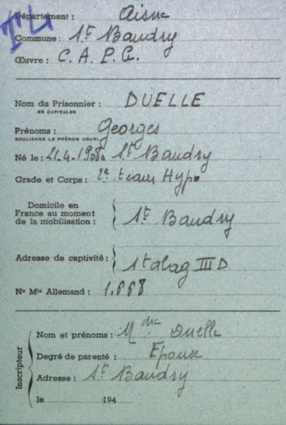 Département : Aisne
Commune : St Baudry
Œuvre : C. A. P. G.
Nom du Prisonnier : DUELLE
EN CAPITALES
Prénoms : Georges
SOULIGNER LE PRÉNOM USUEL
Né le : 21-4-1908 à St Baudry
Grade et Corps : 2e Hypo
Domicile en
France au moment
de la mobilisation : St Baudry
Adresse de captivité : Stalag III D
No Mle Allemand : 1.668
Inscripteur
Nom et prénoms : Mme Duelle
Degré de parenté : Epouse
Adresse : St Baudry
le 194